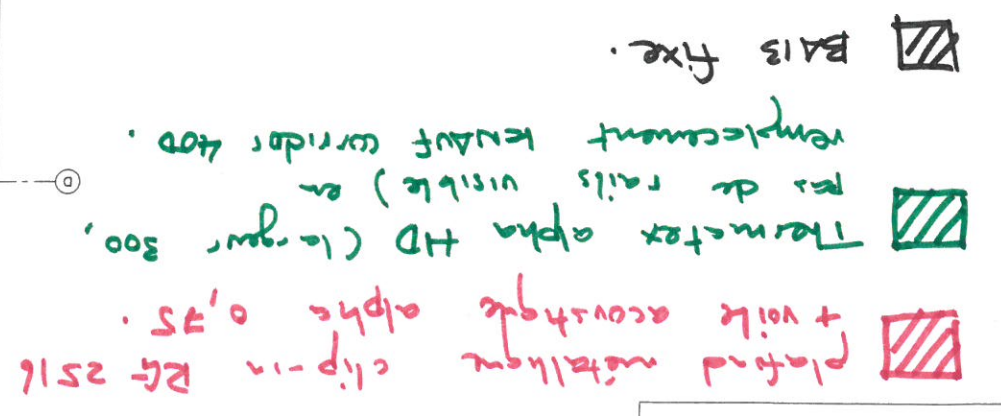 plafond métallique clip-in RG 2516
+ voile acoustique alpha 0,75.
Thermatex alpha HD (largeur 300,
pas de rails visible) en
remplacement KNAUF corridor 400.
BA13 fixe.
D